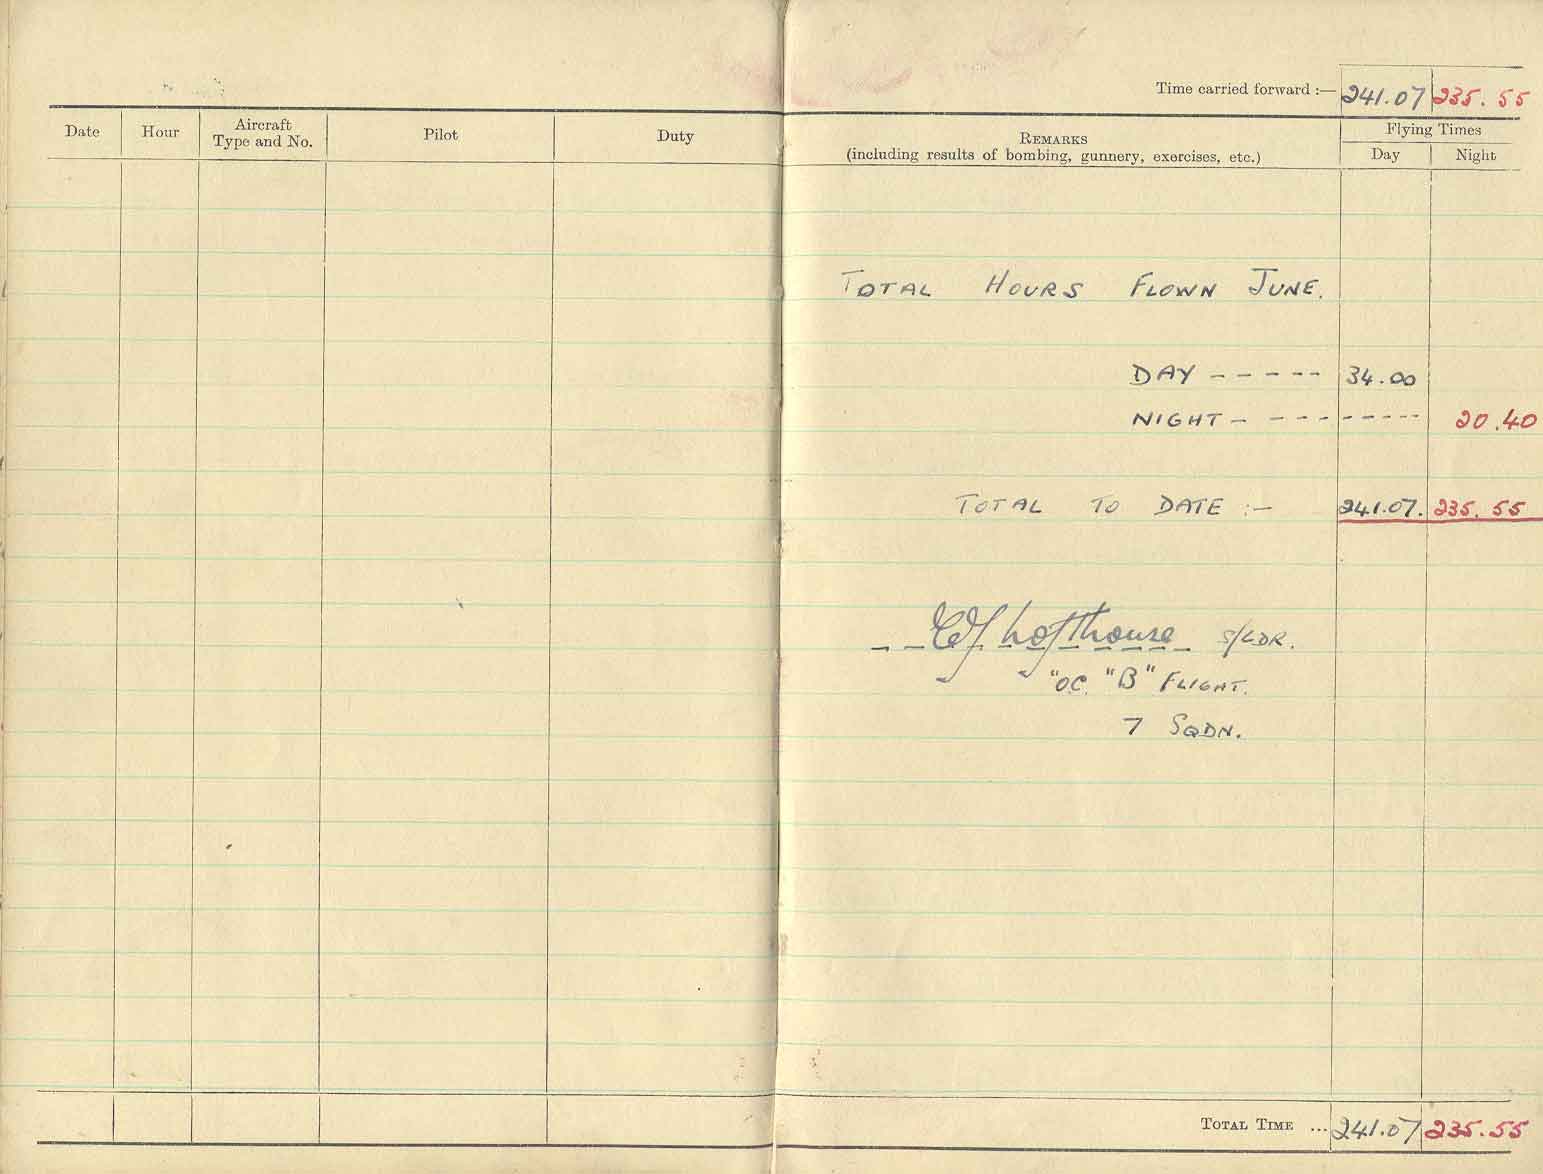 Time carried forward :— 241.07 235.55
Date Hour Aircraft Type and No. Pilot Duty REMARKS (including results of bombing, gunnery, exercises, etc.) Flying Times
Day Night
TOTAL HOURS FLOWN JUNE.
DAY ----- 34.00
NIGHT - -------- 20.40
TOTAL TO DATE :- 241.07. 235.55
Lofthouse S/LDR.
"OC. "B" FLIGHT.
7 SQDN.
TOTAL TIME ... 241.07 235.55